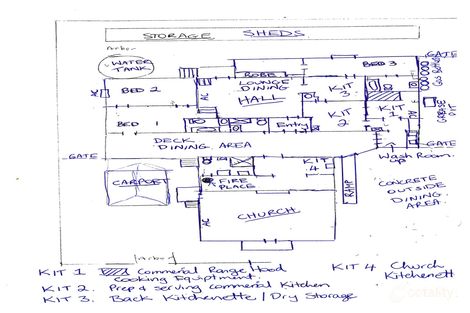 STORAGE SHEDS
WATER
TANK
BED 2
BED 1
AC
ROBE
LOUNGE
DINING
HALL
BED 3
KIT
3
KIT
1
KIT
2
Entry
GATE
Gas Bottles
GARBAGE
DECK
DINING AREA
GATE
GATE
Wash Room
CARPORT
FIRE
PLACE
KIT
4
RAMP
CONCRETE
OUTSIDE
DINING
AREA
AC
CHURCH
KIT 1 Commercial Range Hood
Cooking Equiptment.
KIT 2. Prep & serving commercial Kitchen
KIT 3. Back Kitchenette / Dry Storage
KIT 4 Church
Kitchenett
cotality